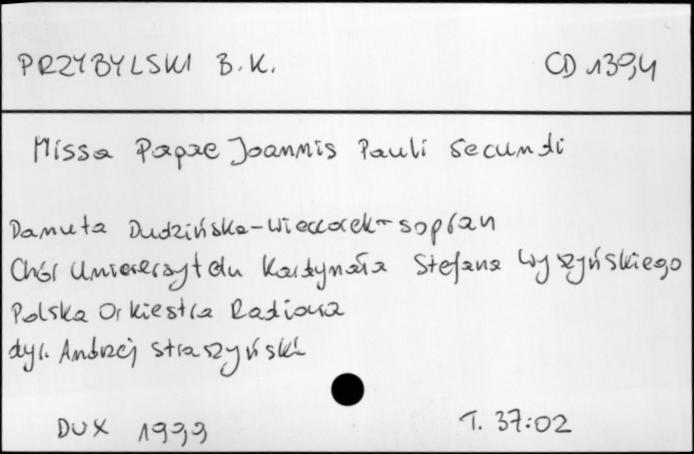 PRZYBYLSKI B.K. CD 1394
Missa Papae Joannis Pauli Secundi
Danuta Dudzińska-Wieczorek - sopran
Chór Uniwersytetu Kardynała Stefana Wyszyńskiego
Polska Orkiestra Radiowa
dyr. Andrzej Straszyński
DUX 1999 T. 37:02